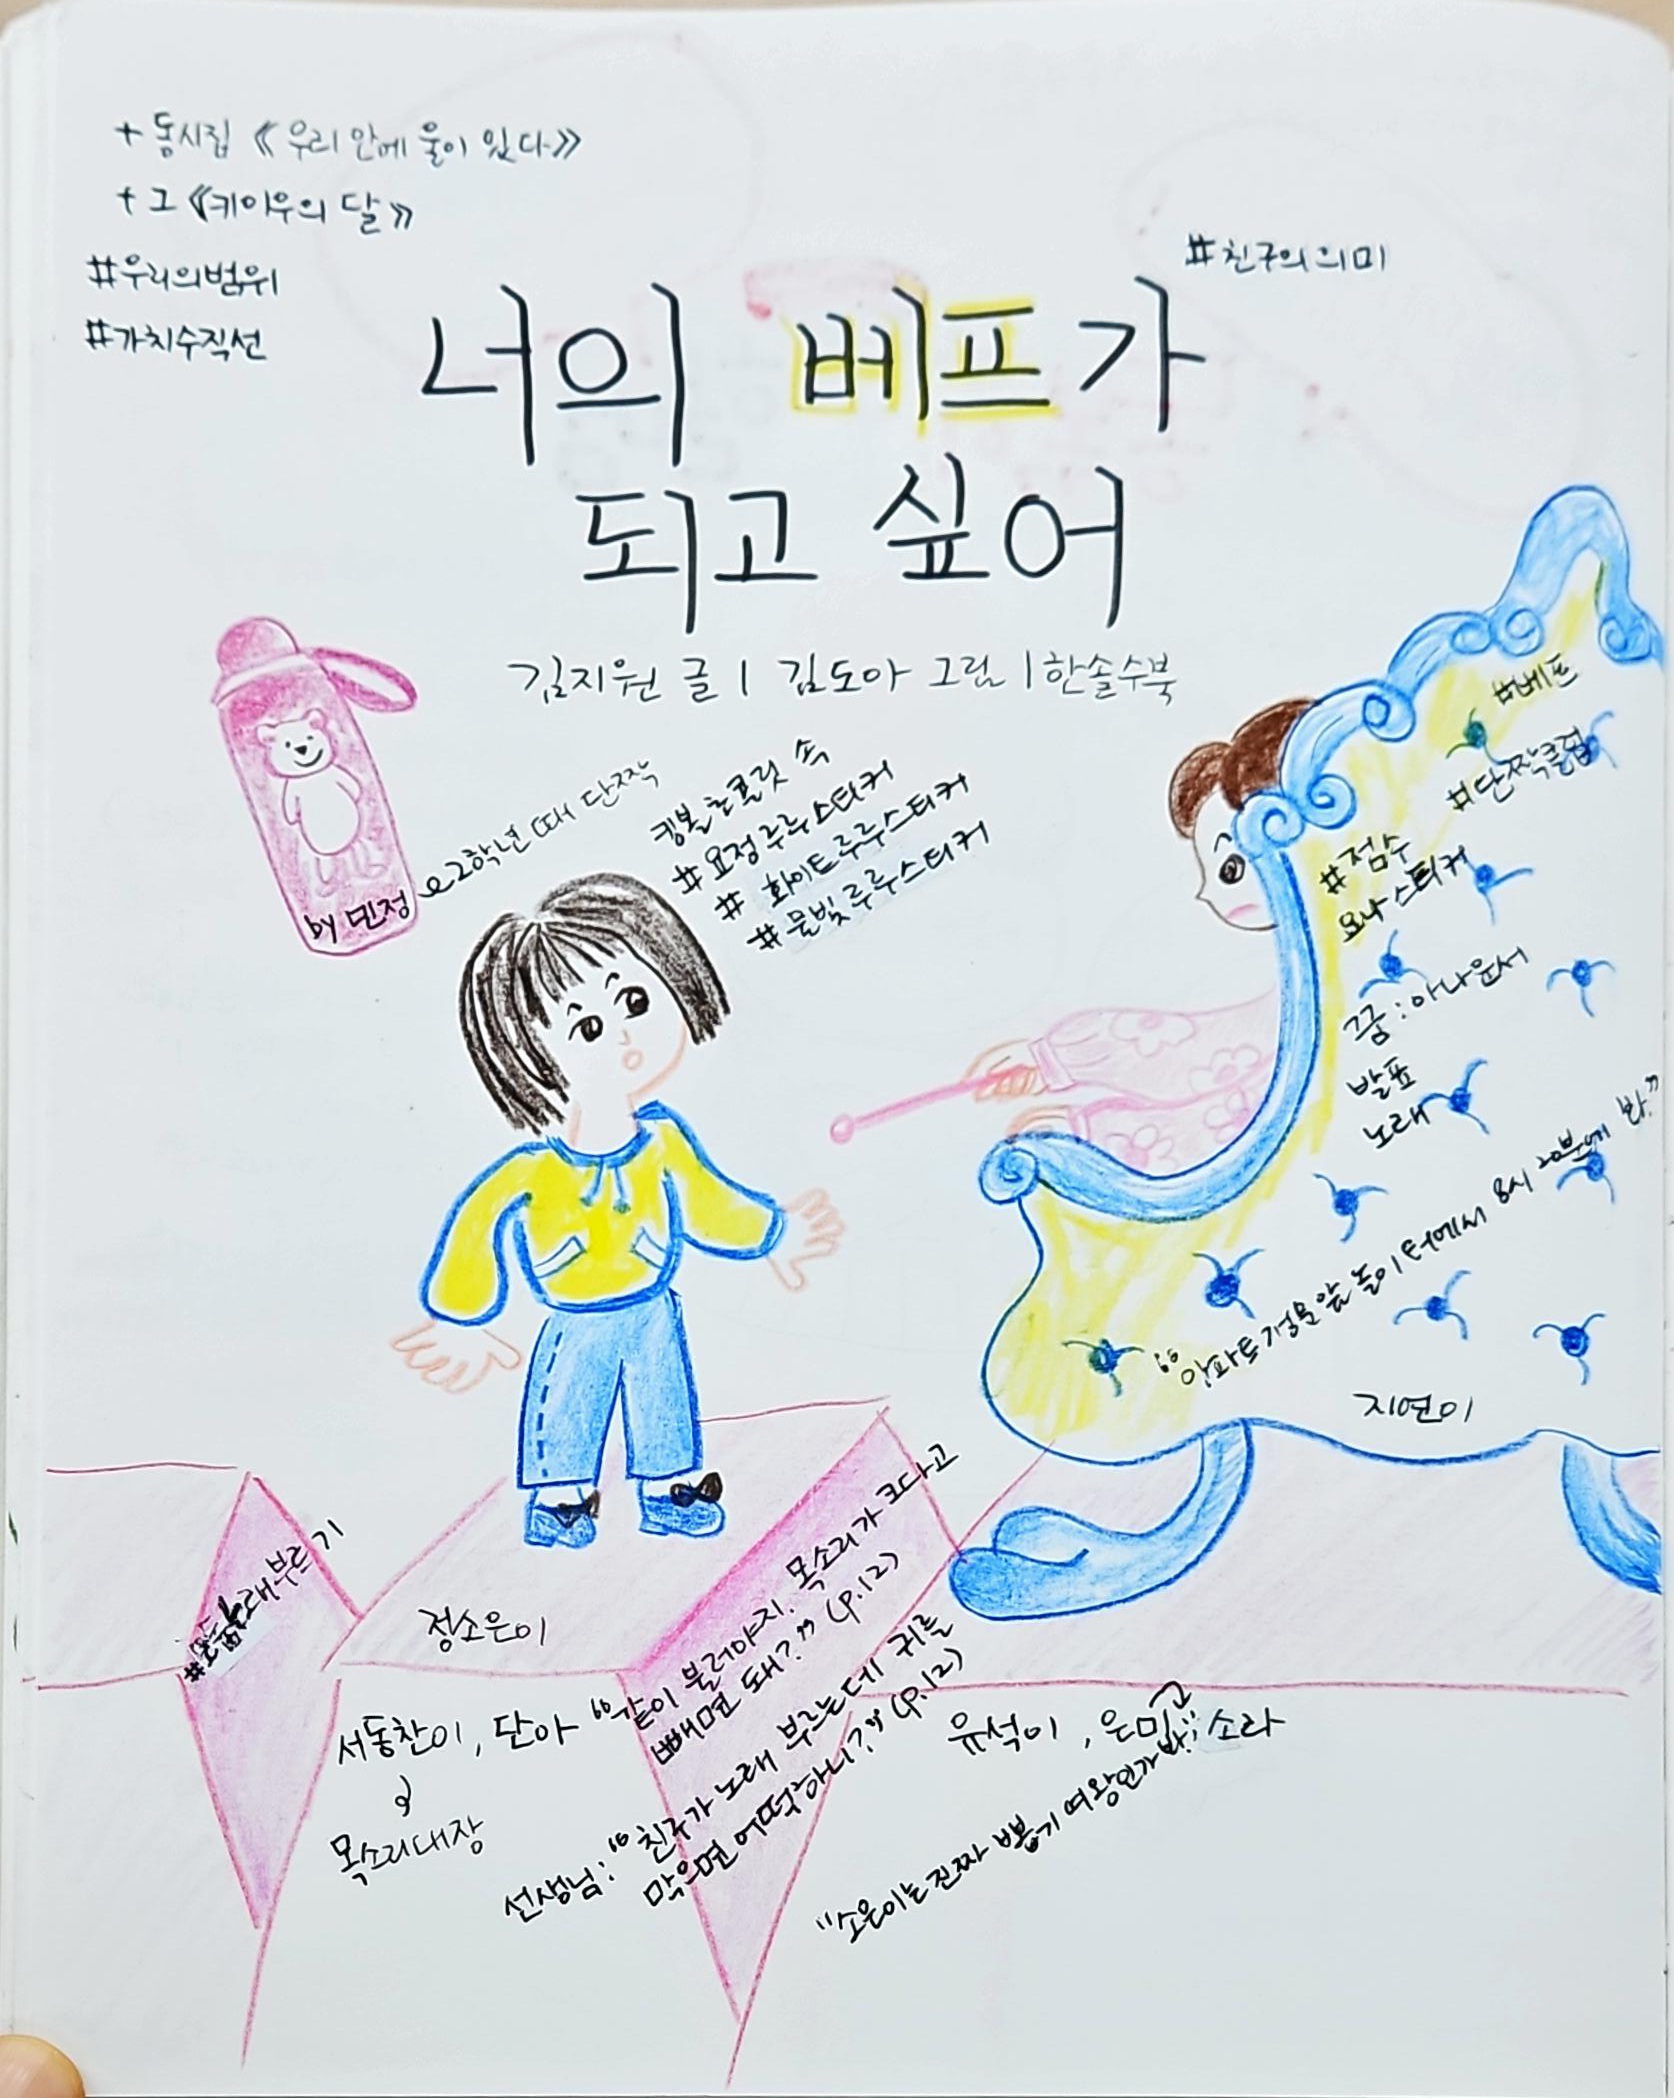 + 동시집 《우리 안에 울이 있다》
+ 그 《키이우의 달》
#우리의범위
#가치수직선
#친구의 의미
너의 베프가
되고 싶어
김지원 글 | 김도아 그림 | 한솔수북
by 민정
2학년 때 단짝
킹볼 초콜릿 속
#요정루루스티커
# 화이트루루스티커
#물빛루루스티커
#베프
#단짝클럽
#점수
요나스티커
꿈 : 아나운서
발표
노래
“아파트 정문 앞 놀이터에서 8시 20분에 봐.”
지연이
노래부르기
정소은이
서동찬이, 단아
목소리대장
“같이 불러야지. 목소리가 크다고
빼면 돼?” (p.12)
선생님: “친구가 노래 부르는데 귀를
막으면 어떡하니?” (p.12)
유석이, 은미, 소라
“소은이는 진짜 뽑기 여왕인가 봐.”